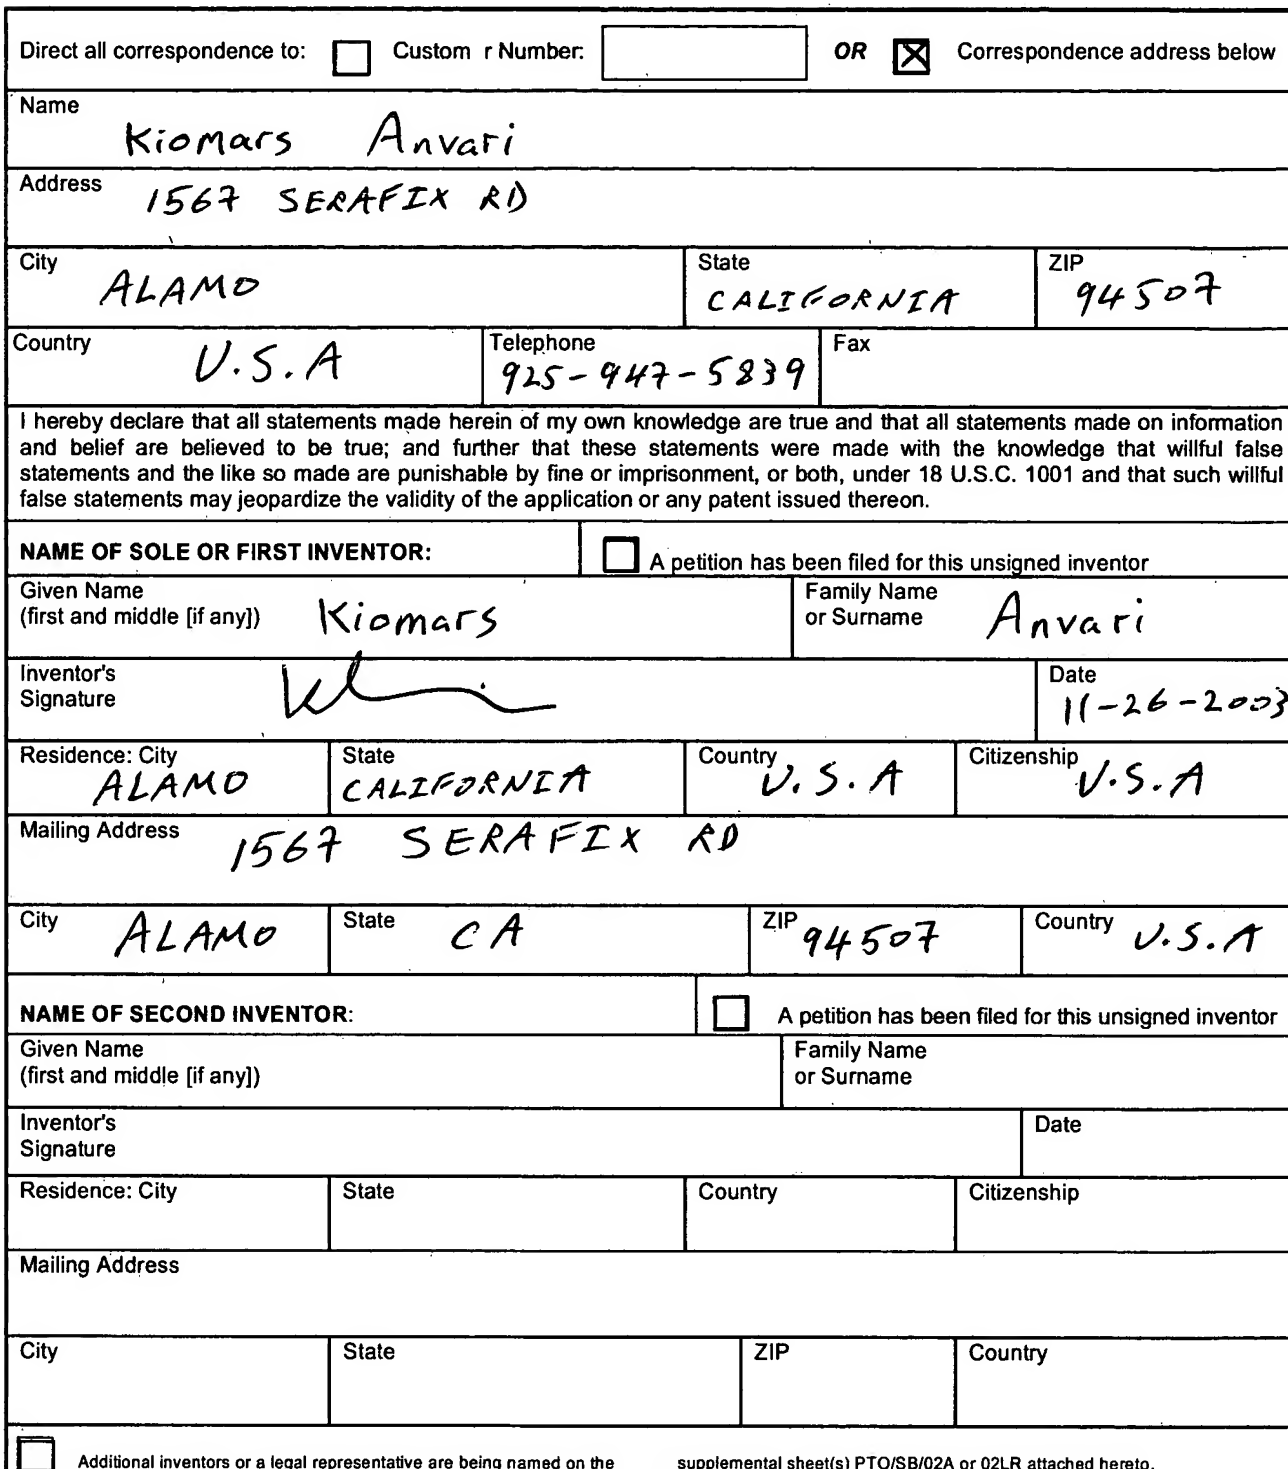 Direct all correspondence to: Custom r Number: OR Correspondence address below
Name
Kiomars Anvari
Address
1567 SERAFIX RD
City State ZIP
ALAMO CALIFORNIA 94507
Country Telephone Fax
U.S.A 925-947-5839
I hereby declare that all statements made herein of my own knowledge are true and that all statements made on information
and belief are believed to be true; and further that these statements were made with the knowledge that willful false
statements and the like so made are punishable by fine or imprisonment, or both, under 18 U.S.C. 1001 and that such willful
false statements may jeopardize the validity of the application or any patent issued thereon.
NAME OF SOLE OR FIRST INVENTOR: A petition has been filed for this unsigned inventor
Given Name Family Name
(first and middle [if any]) Kiomars or Surname Anvari
Inventor's Date
Signature 11-26-2003
Residence: City State Country Citizenship
ALAMO CALIFORNIA U.S.A U.S.A
Mailing Address 1567 SERAFIX RD
City ALAMO State CA ZIP 94507 Country U.S.A
NAME OF SECOND INVENTOR: A petition has been filed for this unsigned inventor
Given Name Family Name
(first and middle [if any]) or Surname
Inventor's Date
Signature
Residence: City State Country Citizenship
Mailing Address
City State ZIP Country
Additional inventors or a legal representative are being named on the supplemental sheet(s) PTO/SB/02A or 02LR attached hereto.